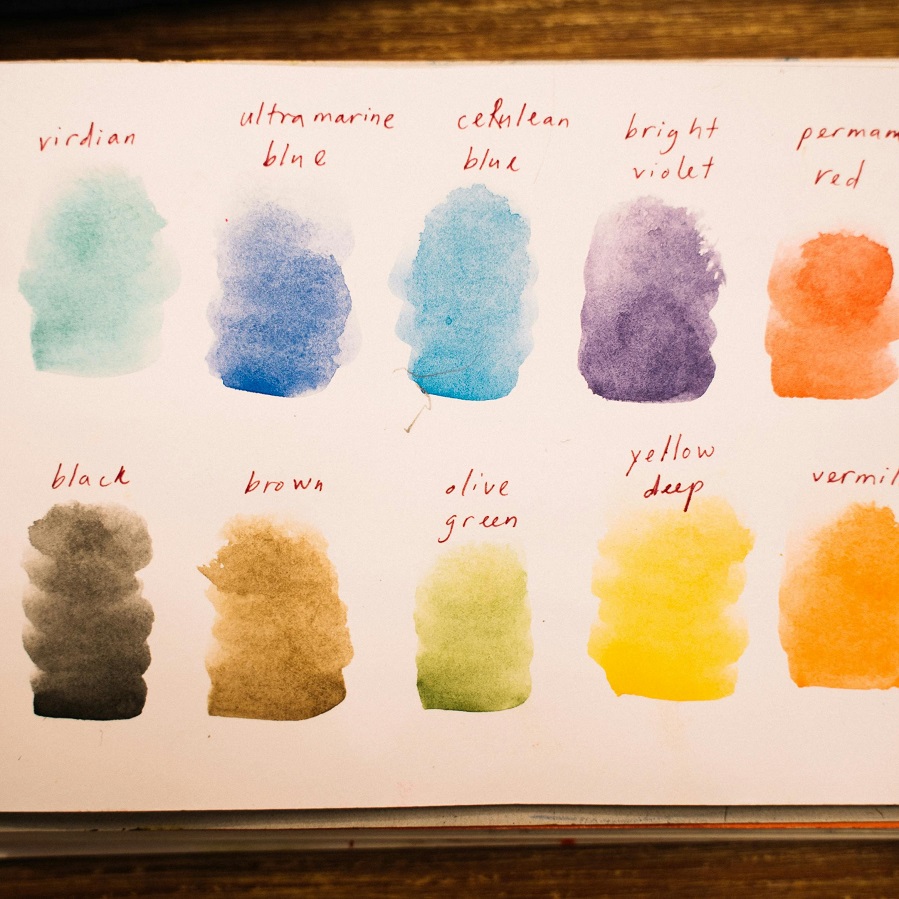 virdian
ultramarine
blue
cerulean
blue
bright
violet
perman
red
black
brown
olive
green
yellow
deep
vermil